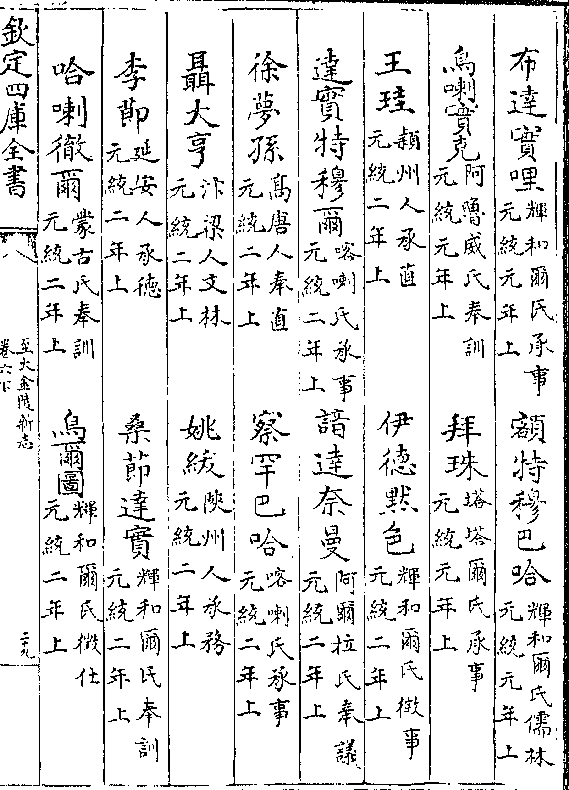 布達實哩 輝和爾氏承事 元統元年上
額特穆巴哈 輝和爾氏儒林 元統元年上
烏喇實克 阿嚕威氏奉訓 元統元年上
拜珠 塔塔爾氏承事 元統元年上
王珪 潁州人承直 元統二年上
伊德黙色 輝和爾氏徴事 元統二年上
達實特穆爾 喀喇氏承事 元統二年上
諳達奈曼 阿爾拉氏奉議 元統二年上
徐夢孫 髙唐人奉直 元統二年上
察罕巴哈 喀喇氏承事 元統二年上
聶大亨 汴梁人文林 元統二年上
姚紱 陜州人承務 元統二年上
李節 延安人承德 元統二年上
桑節達實 輝和爾氏奉訓 元統二年上
哈喇徹爾 蒙古氏奉訓 元統二年上
烏爾圖 輝和爾氏徴仕 元統二年上
欽定四庫全書
至大金陵新志
卷六下
二九